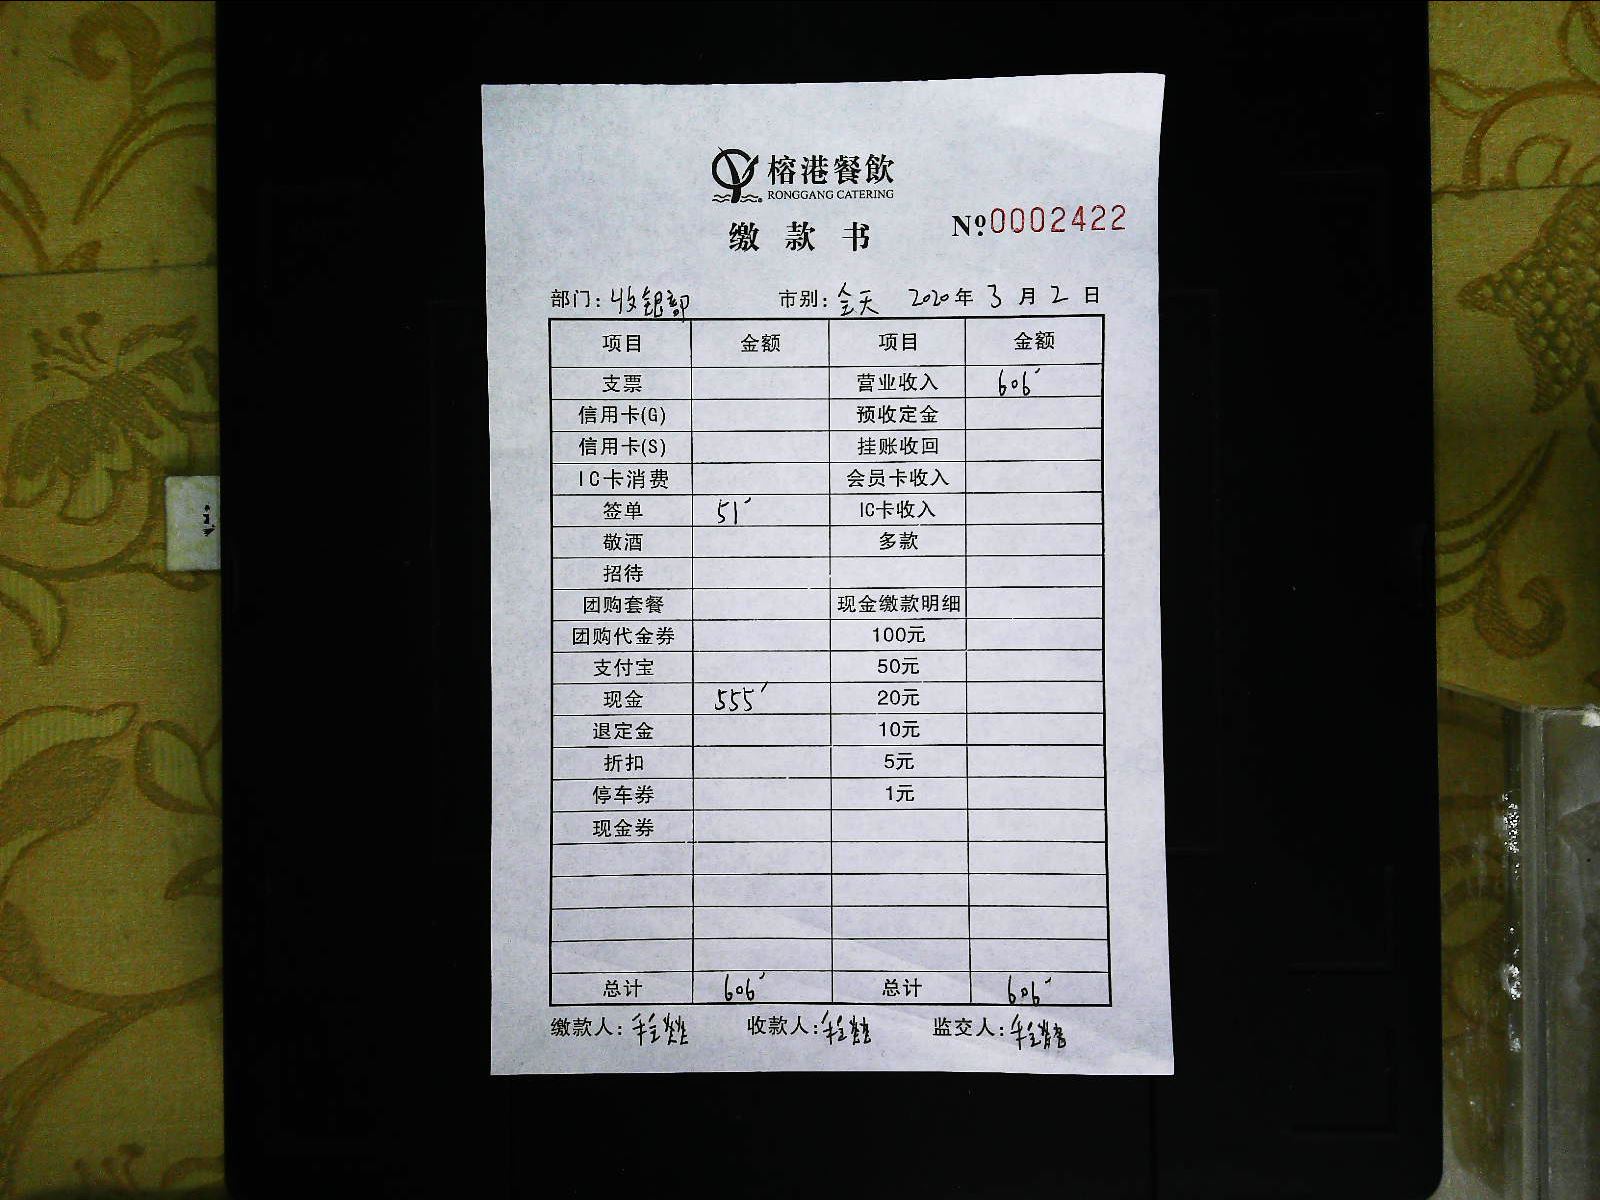 榕港餐飲
RONGGANG CATERING
缴款书
Nº 0002422
部门：收银部 市别：全天 2020年3月2日
项目 金额 项目 金额
支票 营业收入 606
信用卡(G) 预收定金
信用卡(S) 挂账收回
IC卡消费 会员卡收入
签单 51 IC卡收入
敬酒 多款
招待
团购套餐 现金缴款明细
团购代金券 100元
支付宝 50元
现金 555 20元
退定金 10元
折扣 5元
停车券 1元
现金券
总计 606 总计 606
缴款人： 收款人： 监交人：